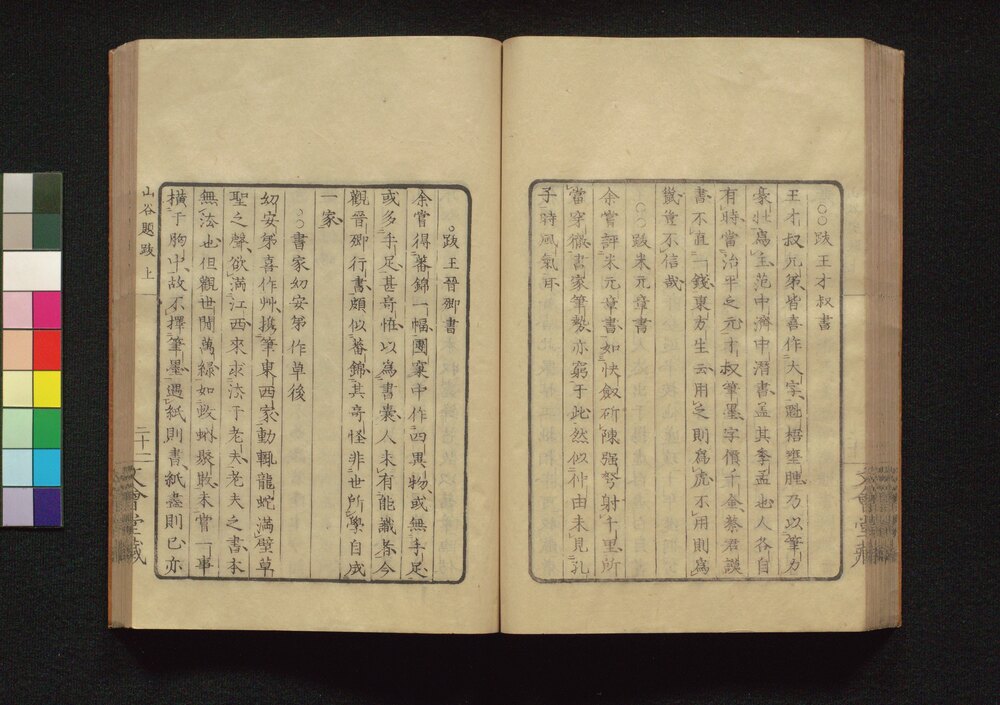 ○○跋王才叔書
王才叔兄弟皆喜作大字魁梧壅腫乃以筆力
豪壯爲主范中濟中潛書盖其季孟也人各自
有時當治平之元才叔筆墨字價千金蔡君謨
書不直一錢東方生云用之則爲虎不用則爲
鼠豈不信哉
○○跋米元章書
余嘗評米元章書如快劔斫陳强弩射千里所
當穿徹書家筆勢亦窮于此然似仲由未見孔
子時風氣耳
○跋王晉卿書
余嘗得蕃錦一幅團窠中作四異物或無手足
或多手足甚奇恠以爲書囊人未有能識者今
觀晉卿行書頗似蕃錦其奇怪非世所學自成
一家
○○書家幼安弟作草後
幼安弟喜作艸携筆東西家動輒龍蛇滿壁草
聖之聲欲滿江西來求法于老夫老夫之書本
無法也但觀世間萬緣如蚊蚋聚散未嘗一事
橫于胸中故不擇筆墨遇紙則書紙盡則已亦
山谷題跋 上
二十二
文會堂藏
文會堂藏